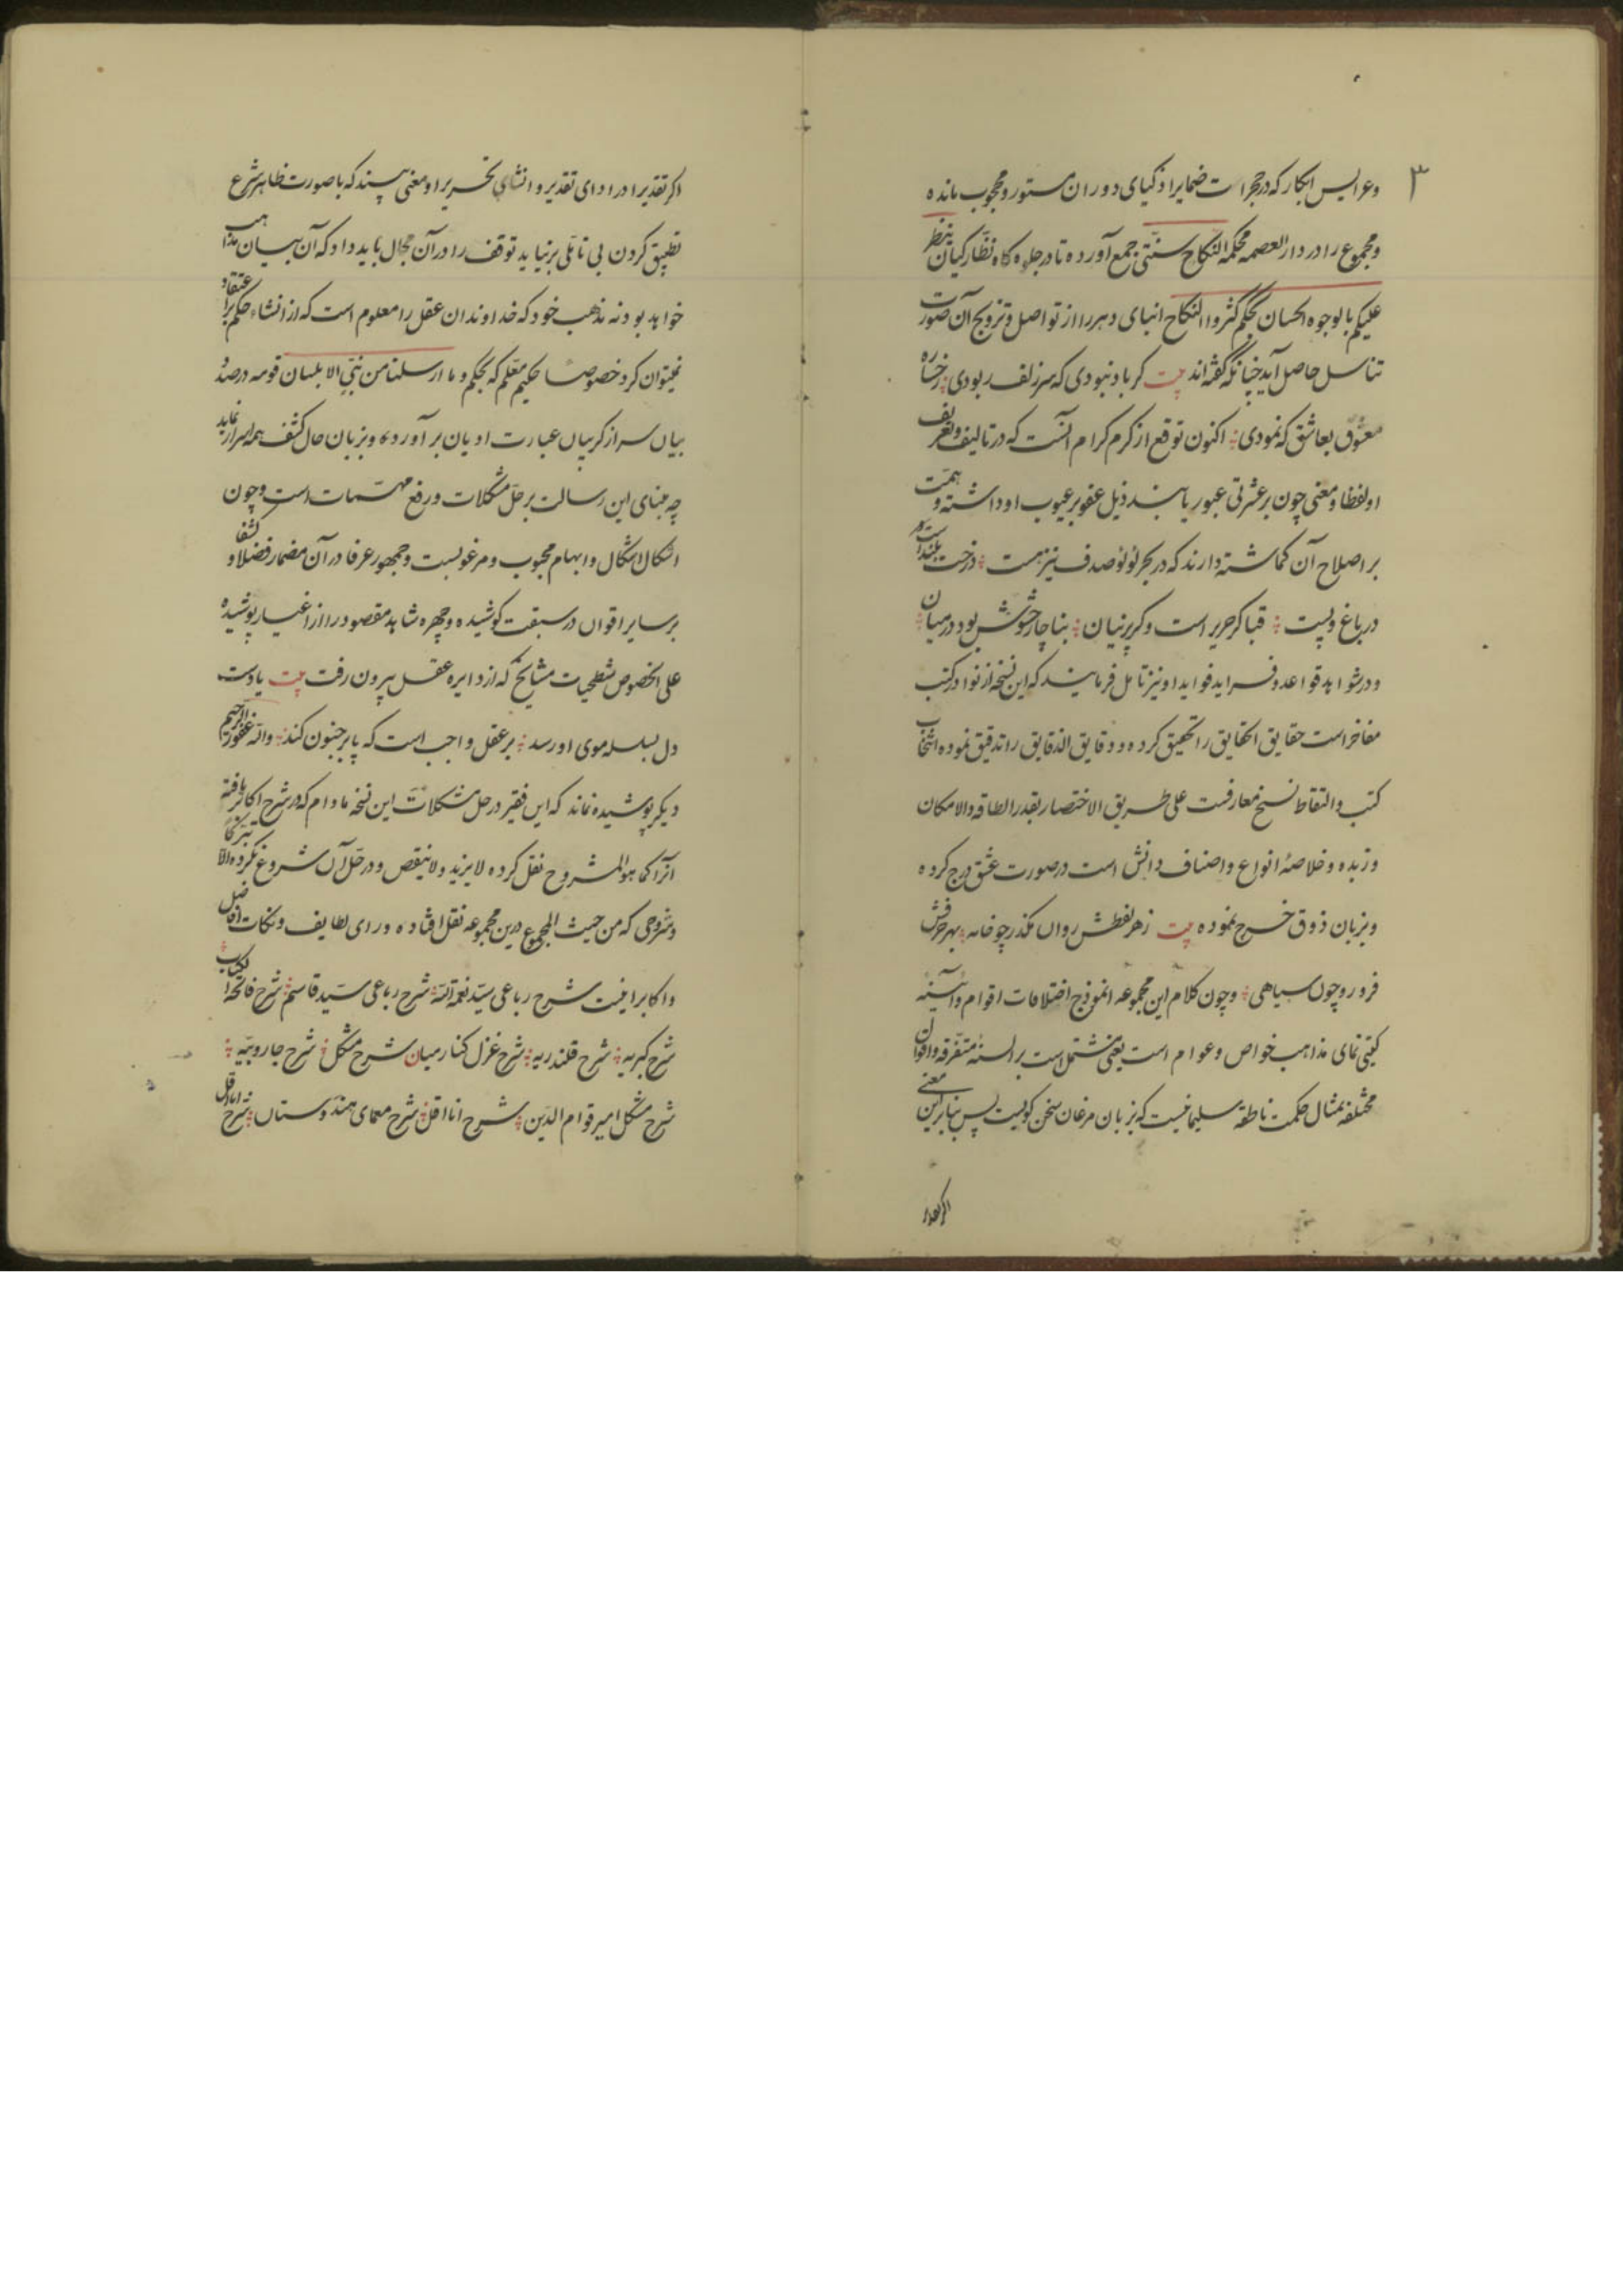 ۳
وعرایس ابکار که در حجرات ضمایر اذکیای دوران مستور و محجوب مانده
و مجموع را در دار العصمه محکمه النکاح سنتی جمع آورده تا در جلوه گاه نظارکیان بنظر
علیکم بالوجوه الحسان بحکم کثروا النکاح ابنای دهر را از تواصل و تزویج آن صورت
تناسل حاصل آید چنانکه گفته‌اند بیت کر باد نبودی که سر زلف ربودی رخساره
معشوق بعاشق که نمودی اکنون توقع از کرم کرام آنست که در تالیف و تعریف
او لفظا و معنی چون بر عثرتی عبور یابند ذیل عفو بر عیوب او داشته و همت
بر اصلاح آن کماشته دارند که در بحر لولو صدف نیز هست درخت بلند است
در باغ و پست قبا کر حریر است و کر پرنیان بناچار حشوش بود در میان
و در شواهد قواعد و فراید فواید او نیز تامل فرمایند که این نسخه از نوادر کتب
مفاخر است حقایق الحقایق را تحقیق کرده و دقایق الدقایق را تدقیق نموده انتخاب
کتب و التقاط نسخ معارفست علی طریق الاختصار بقدر الطاقه و الامکان
و زبده و خلاصهٔ انواع و اصناف دانش است در صورت عشق درج کرده
و بزبان ذوق خرج نموده بیت ز هر لفظش روان مکذر چو خامه بهر حرفش
فرو رو چون سیاهی و چون کلام این مجموعه انموذج اختلافات اقوام و آئینهٔ
کیتی نمای مذاهب خواص و عوام است یعنی مشتمل است بر السنهٔ متفرقه و اقوال
مختلفه بمثال حکمت ناطقه سلیمانیست که بزبان مرغان سخن کویست پس بنابرین معنی
اکر تقدیر
اکر تقدیرا در ادای تقدیر و انشای تحریر او معنی بینند که با صورت ظاهر شرع
تطبیق کردن بی تاملی برنیاید توقف را در آن مجال باید داد که آن بیان مذهب
خواهد بود نه مذهب خود که خداوندان عقل را معلوم است که از انشاء حکم بر اعتقاد
نمیتوان کرد خصوصا حکیم معلم که بحکم و ما ارسلنا من نبی الا بلسان قومه در صدد
بیان سر از کریبان عبارت ادیان برآورده و بزبان حال کشف همه اسرار نماید
چه مبنای این رسالت بر حل مشکلات و رفع مهمات است و چون
اشکال اشکال و ابهام محبوب و مرغوبست و جمهور عرفا در آن مضمار فضلا و کشفا
بر سایر اقوال در سبقت کوشیده و چهره شاهد مقصود را از اغیار پوشیده
علی الخصوص شطحیات مشایخ که از دایره عقل بیرون رفت بیت یا دست
دل بسلسله موی او رسد بر عقل واجب است که پا بر جنون کند والله غفور الرحیم
دیکر پوشیده نماند که این فقیر در حل مشکلات این نسخه مادام که در شرح اکابر یافته
آنرا کما هو المشروح نقل کرده لا یزید و لا ینقص و در حل آن شروع نکرده الا تبرکا
و شروحی که من حیث المجموع درین مجموعه نقل افتاده ورای لطایف و نکات افاضل
و اکابر اینست شرح رباعی سید نعمة الله شرح رباعی سید قاسم شرح فاتحة الکتاب
شرح کبریه شرح قلندریه شرح غزل کنار میان شرح مشکل شرح جاروبیه
شرح مشکل امیر قوام الدین شرح انا اقل شرح معمای هندوستان شرح انا اقل